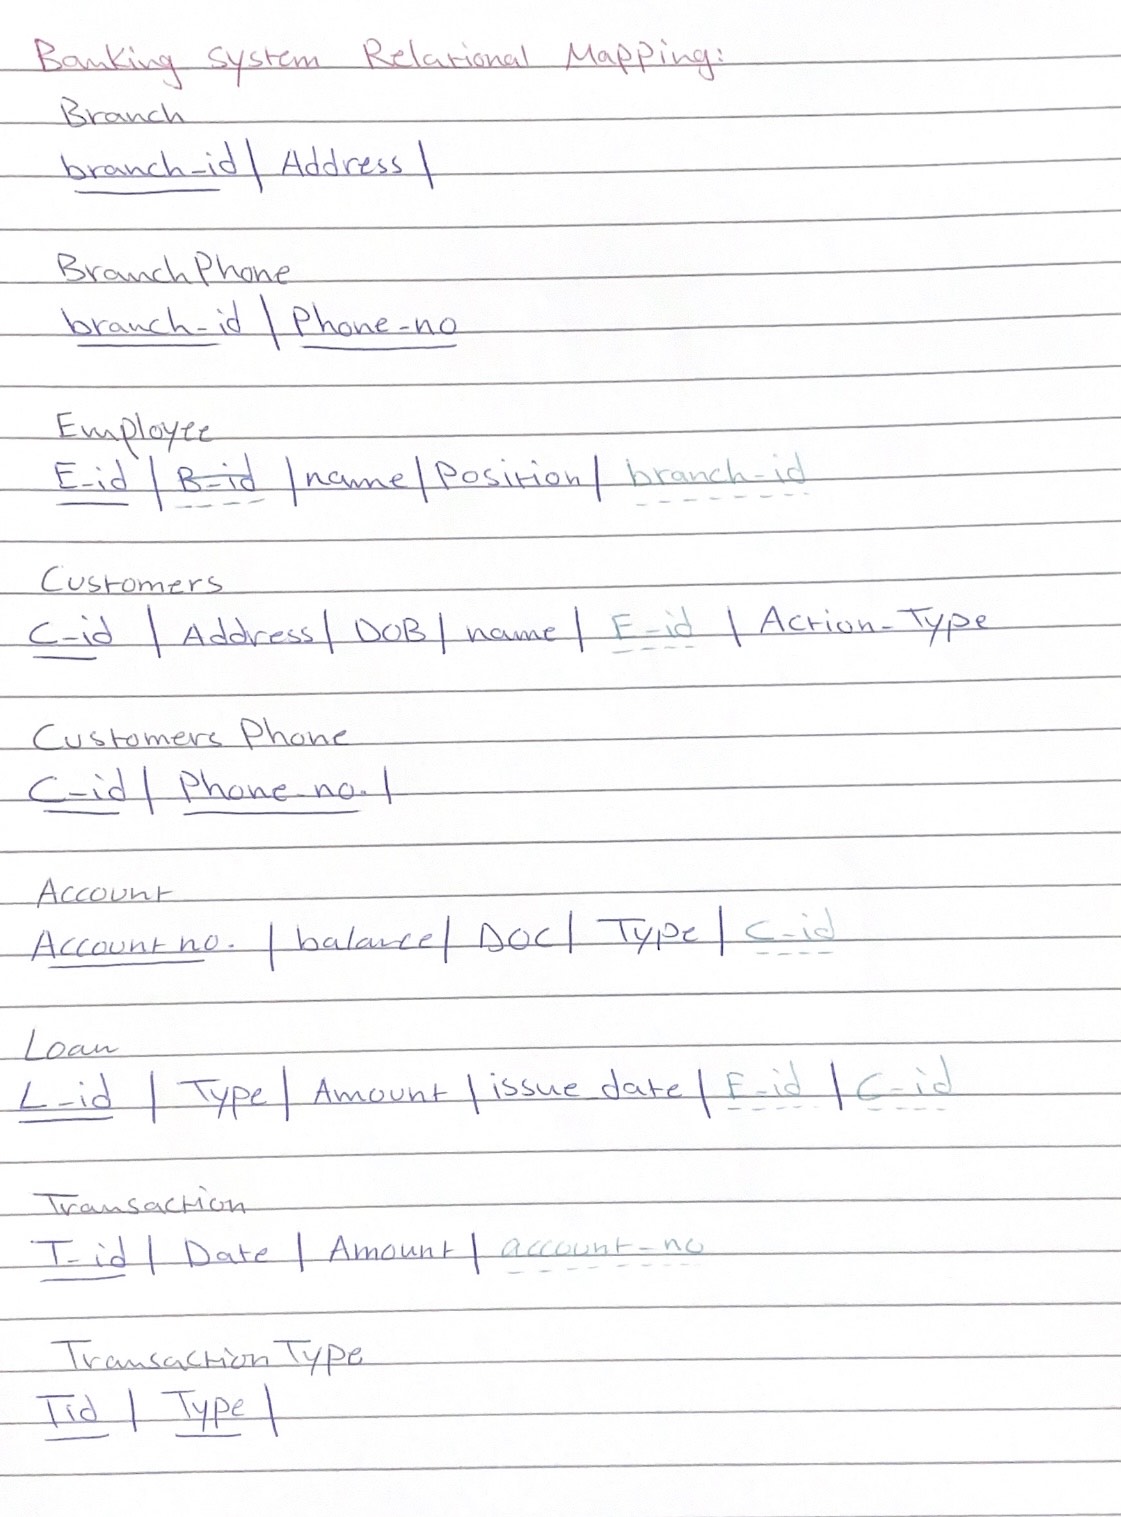 Banking system Relational Mapping:
Branch
branch-id | Address |
BranchPhone
branch-id | Phone-no
Employee
E-id | B-id | name | Position | branch-id
Customers
C-id | Address | DOB | name | E-id | Action-Type
Customers Phone
C-id | Phone no. |
Account
Account no. | balance | DOC | Type | C-id
Loan
L-id | Type | Amount | issue date | E-id | C-id
Transaction
T-id | Date | Amount | account-no
TransactionType
Tid | Type |